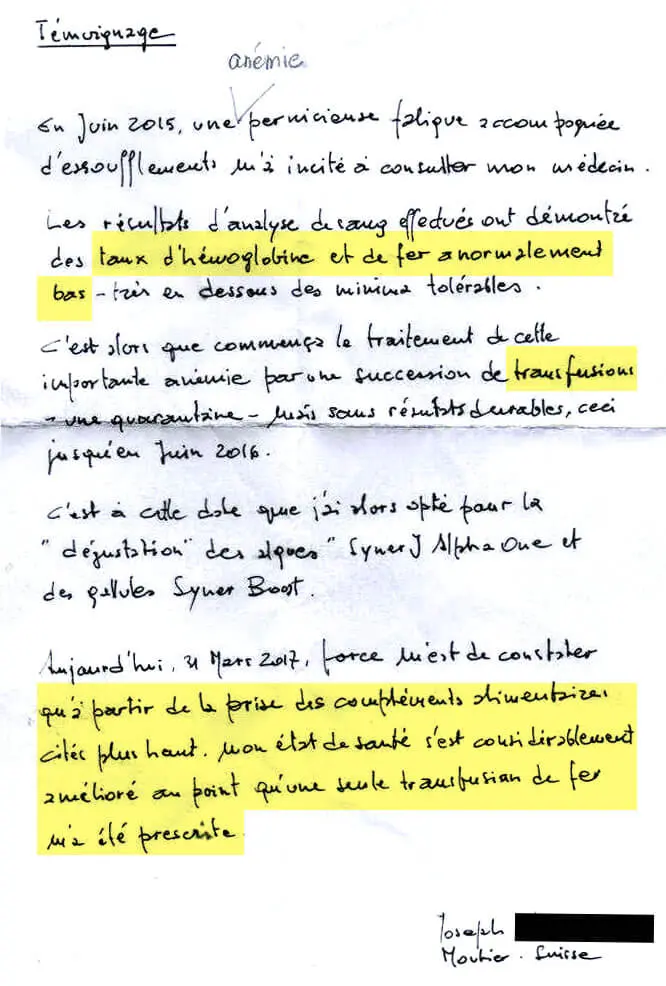 Témoignage
anémie
En Juin 2015, une pernicieuse fatigue accompagnée
d'essoufflements m'a incité à consulter mon médecin.
Les résultats d'analyse de sang effectués ont démontré
des taux d'hémoglobine et de fer anormalement
bas - très en dessous des minima tolérables.
C'est alors que commença le traitement de cette
importante anémie par une succession de transfusions
- une quarantaine - mais sans résultats durables, ceci
jusqu'en Juin 2016.
C'est à cette date que j'ai alors opté pour la
"dégustation" des algues" SynerJ Alpha One et
des gellules Syner Boost.
Aujourd'hui, 31 Mars 2017, force m'est de constater
qu'à partir de la prise des compléments alimentaires
cités plus haut. Mon état de santé s'est considérablement
amélioré au point qu'une seule transfusion de fer
m'a été prescrite.
Joseph
Moutier. Suisse